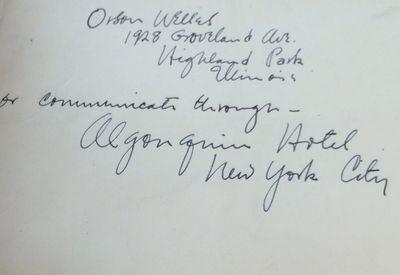 Orson Welles
1928 Groveland Ave.
Highland Park
Illinois
or communicate through –
Algonquin Hotel
New York City